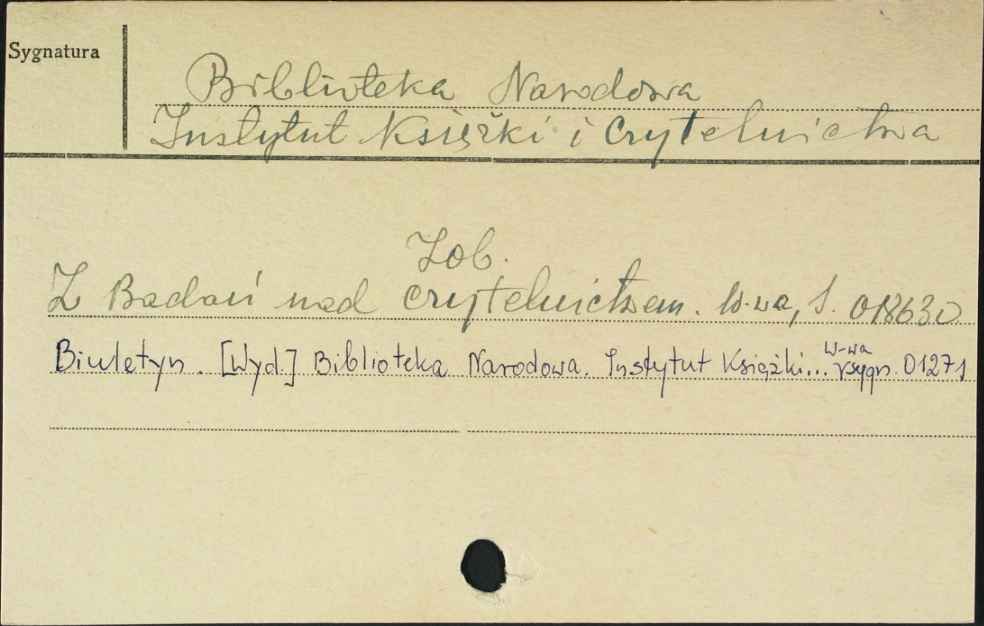 Sygnatura
Biblioteka Narodowa
Instytut Książki i Czytelnictwa
Zob.
Z Badań nad czytelnictwem. W-wa, S. 018630
Biuletyn. [Wyd.] Biblioteka Narodowa. Instytut Książki... W-wa sygn. 01271